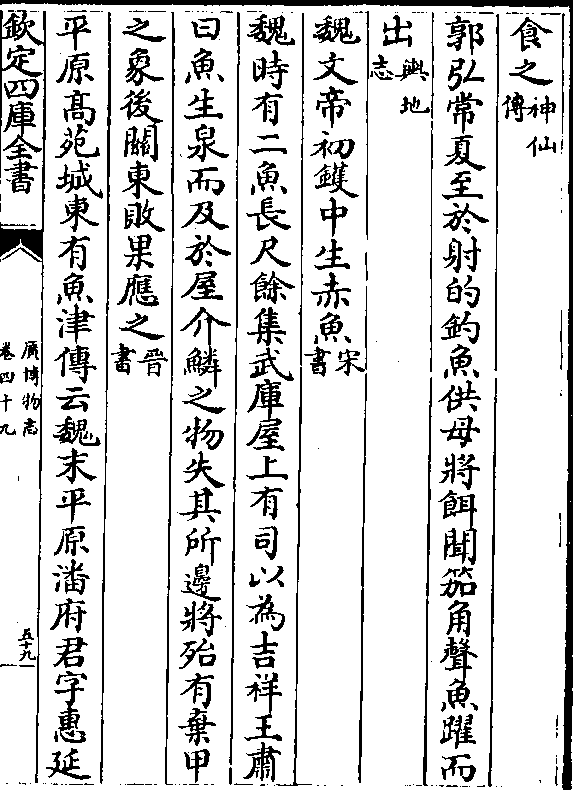 食之神仙傳
郭弘常夏至於射的釣魚供母將餌聞笳角聲魚躍而
出輿地志
魏文帝初鑊中生赤魚宋書
魏時有二魚長尺餘集武庫屋上有司以為吉祥王肅
曰魚生泉而及於屋介鱗之物失其所邊將殆有棄甲
之象後關東敗果應之晉書
平原高苑城東有魚津傳云魏末平原潘府君字惠延
欽定四庫全書
廣博物志
卷四十九
五十九